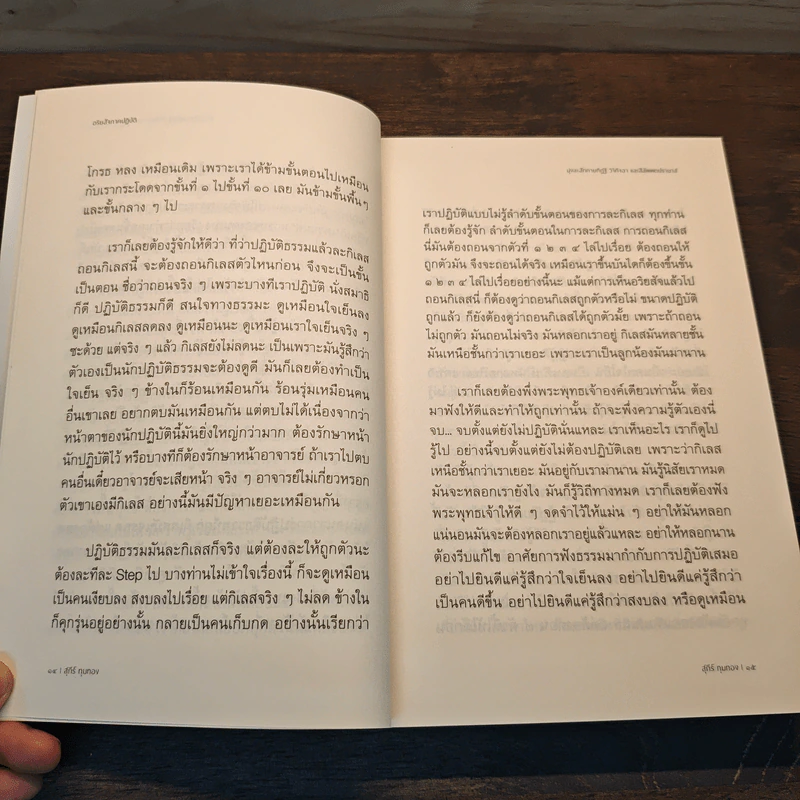 โกรธ หลง เหมือนเดิม เพราะเราได้ข้ามขั้นตอนไปเหมือน
กับเรากระโดดจากขั้นที่ ๑ ไปขั้นที่ ๑๐ เลย มันข้ามขั้นพื้นๆ
และขั้นกลาง ๆ ไป
เราก็เลยต้องรู้จักให้ดีว่า ที่ว่าปฏิบัติธรรมแล้วละกิเลส
ถอนกิเลสนี้ จะต้องถอนกิเลสตัวไหนก่อน จึงจะเป็นขั้น
เป็นตอน ชื่อว่าถอนจริง ๆ เพราะบางทีเราปฏิบัติ นั่งสมาธิ
ก็ดี ปฏิบัติธรรมก็ดี สนใจทางธรรมะ ดูเหมือนใจเย็นลง
ดูเหมือนกิเลสลดลง ดูเหมือนนะ ดูเหมือนเราใจเย็นจริง ๆ
ซะด้วย แต่จริง ๆ แล้ว กิเลสยังไม่ลดนะ เป็นเพราะมันรู้สึกว่า
ตัวเองเป็นนักปฏิบัติธรรมจะต้องดูดี มันก็เลยต้องทำเป็น
ใจเย็น จริง ๆ ข้างในก็ร้อนเหมือนกัน ร้อนรุ่มเหมือนคน
อื่นเขาเลย อยากตบมันเหมือนกัน แต่ตบไม่ได้เนื่องจากว่า
หน้าตาของนักปฏิบัตินี้มันยิ่งใหญ่กว่ามาก ต้องรักษาหน้า
นักปฏิบัติไว้ หรือบางทีก็ต้องรักษาหน้าอาจารย์ ถ้าเราไปตบ
คนอื่นเดี๋ยวอาจารย์จะเสียหน้า จริง ๆ อาจารย์ไม่เกี่ยวหรอก
ตัวเขาเองมีกิเลส อย่างนี้มันมีปัญหาเยอะเหมือนกัน
ปฏิบัติธรรมมันละกิเลสก็จริง แต่ต้องละให้ถูกตัวนะ
ต้องละทีละ Step ไป บางท่านไม่เข้าใจเรื่องนี้ ก็จะดูเหมือน
เป็นคนเงียบลง สงบลงไปเรื่อย แต่กิเลสจริง ๆ ไม่ลด ข้างใน
ก็คุกรุ่นอยู่อย่างนั้น กลายเป็นคนเก็บกด อย่างนั้นเรียกว่า
๑๔ | สุภีร์ ทุมทอง
เราปฏิบัติแบบไม่รู้ลำดับขั้นตอนของการละกิเลส ทุกท่าน
ก็เลยต้องรู้จัก ลำดับขั้นตอนในการละกิเลส การถอนกิเลส
นี่มันต้องถอนจากตัวที่ ๑ ๒ ๓ ๔ ไล่ไปเรื่อย ต้องถอนให้
ถูกตัวมัน จึงจะถอนได้จริง เหมือนเราขึ้นบันไดก็ต้องขึ้นขั้น
๑ ๒ ๓ ๔ ไล่ไปเรื่อยอย่างนี้นะ แม้แต่การเห็นอริยสัจแล้วไป
ถอนกิเลสนี่ ก็ต้องดูว่าถอนกิเลสถูกตัวหรือไม่ ขนาดปฏิบัติ
ถูกแล้ว ก็ยังต้องดูว่าถอนกิเลสได้ถูกตัวมั้ย เพราะถ้าถอน
ไม่ถูกตัว มันถอนไม่จริง มันหลอกเราอยู่ กิเลสมันหลายชั้น
มันเหนือชั้นกว่าเราเยอะ เพราะเราเป็นลูกน้องมันมานาน
เราก็เลยต้องพึ่งพระพุทธเจ้าองค์เดียวเท่านั้น ต้อง
มาฟังให้ดีและทำให้ถูกเท่านั้น ถ้าจะพึ่งความรู้ตัวเองนี่
จบ... จบตั้งแต่ยังไม่ปฏิบัตินั่นแหละ เราเห็นอะไร เราก็ดูไป
รู้ไป อย่างนี้จบตั้งแต่ยังไม่ต้องปฏิบัติเลย เพราะว่ากิเลส
เหนือชั้นกว่าเราเยอะ มันอยู่กับเรามานาน มันรู้นิสัยเราหมด
มันจะหลอกเรายังไง มันก็รู้วิธีทางหมด เราก็เลยต้องฟัง
พระพุทธเจ้าให้ดี ๆ จดจำไว้ให้แม่น ๆ อย่าให้มันหลอก
แน่นอนมันจะต้องหลอกเราอยู่แล้วแหละ อย่าให้หลอกนาน
ต้องรีบแก้ไข อาศัยการฟังธรรมมากำกับการปฏิบัติเสมอ
อย่าไปยินดีแค่รู้สึกว่าใจเย็นลง อย่าไปยินดีแค่รู้สึกว่า
เป็นคนดีขึ้น อย่าไปยินดีแค่รู้สึกว่าสงบลง หรือดูเหมือน
สุภีร์ ทุมทอง | ๑๕